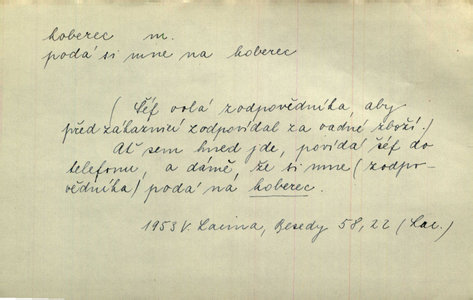 koberec m.
podá si mne na koberec
(Šéf volá zodpovědníka, aby
před zákaznicí zodpovídal za vadné zboží.)
Ať sem hned jde, povídá šéf do
telefonu, a dámě, že si mne (zodpo-
vědníka) podá na koberec.
1953 V. Lacina, Besedy 58, 22 (Lac.)